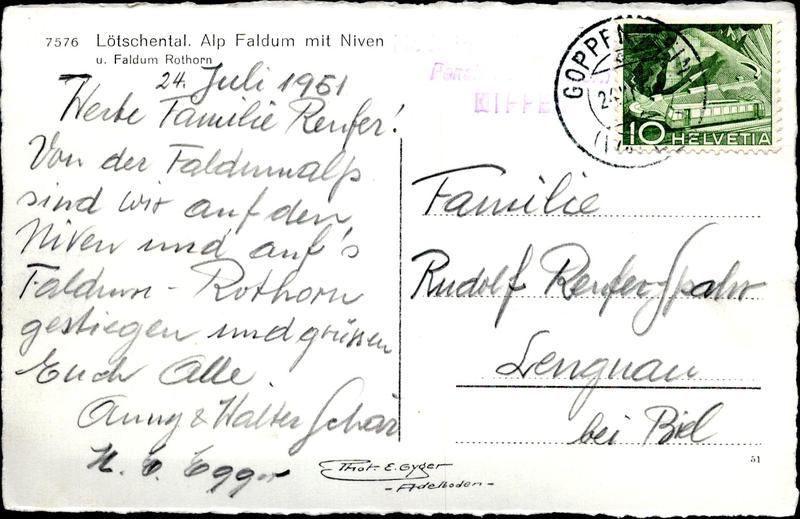 7576 Lötschental. Alp Faldum mit Niven
u. Faldum Rothorn
24. Juli 1951
Werte Familie Renfer!
Von der Faldumalp
sind wir auf den
Niven und auf's
Faldum - Rothorn
gestiegen und grüssen
Euch Alle.
Anny & Walter Schär
H. E. Egger
Phot. E. Gyger
- Adelboden -
GOPPENSTEIN
10 HELVETIA
Familie
Rudolf Renfer-Spahr
Lengnau
bei Biel
51